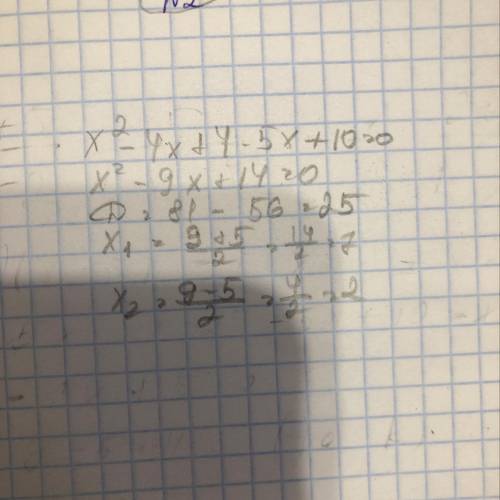 N2
x² - 4x + 4 - 5x + 10 = 0
x² - 9x + 14 = 0
D = 81 - 56 = 25
x₁ = (9+5)/2 = 14/2 = 7
x₂ = (9-5)/2 = 4/2 = 2